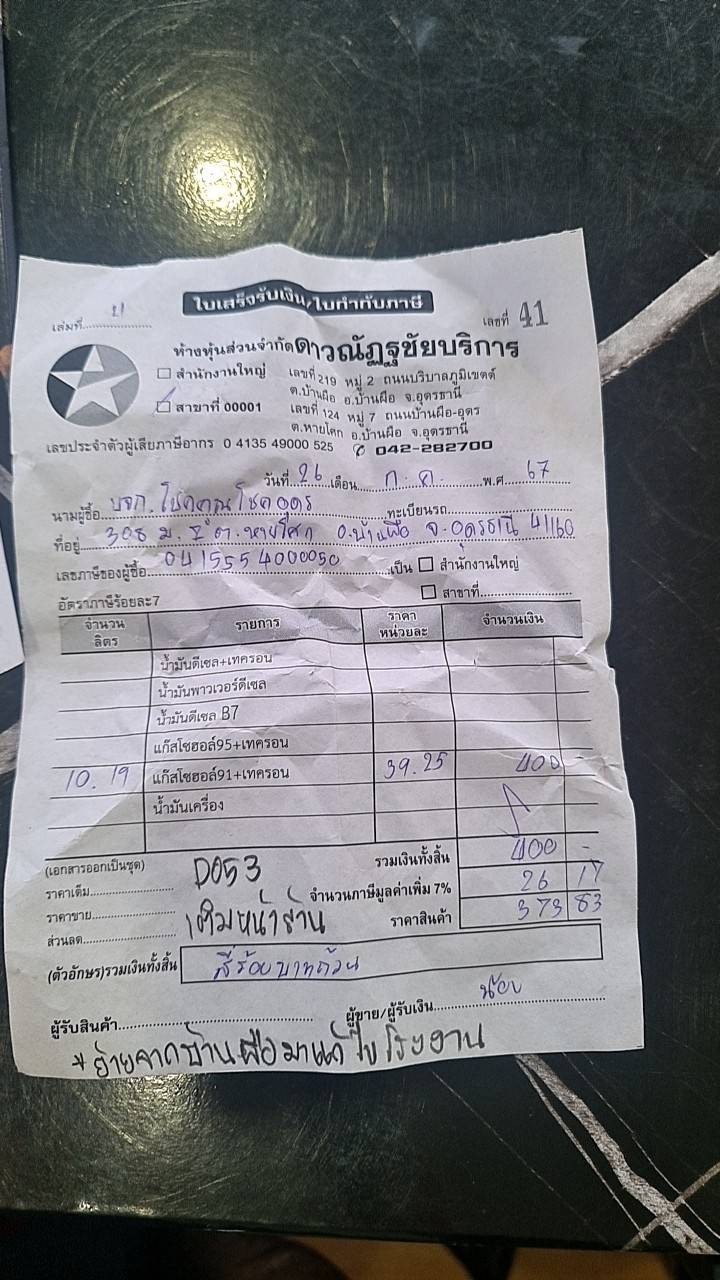 ใบเสร็จรับเงิน/ใบกำกับภาษี
เล่มที่ 21
เลขที่ 41
ห้างหุ้นส่วนจำกัดดาวณัฏฐชัยบริการ
สำนักงานใหญ่ เลขที่ 219 หมู่ 2 ถนนบริบาลภูมิเขตต์
ต.บ้านผือ อ.บ้านผือ จ.อุดรธานี
สาขาที่ 00001 เลขที่ 124 หมู่ 7 ถนนบ้านผือ-อุดร
ต.หายโศก อ.บ้านผือ จ.อุดรธานี
เลขประจำตัวผู้เสียภาษีอากร 0 4135 49000 525 042-282700
วันที่ 26 เดือน ก.ค. พ.ศ 67
นามผู้ซื้อ บจก.โชคคูณโชคอุดร ทะเบียนรถ
ที่อยู่ 308 ม. ต.หายโศก อ.บ้านผือ จ.อุดรธานี 41160
เลขภาษีของผู้ซื้อ 0415554000050 เป็น สำนักงานใหญ่
สาขาที่
อัตราภาษีร้อยละ7
จำนวนลิตร รายการ ราคาหน่วยละ จำนวนเงิน
น้ำมันดีเซล+เทครอน
น้ำมันพาวเวอร์ดีเซล
น้ำมันดีเซล B7
แก๊สโซฮอล์95+เทครอน
10.19 แก๊สโซฮอล์91+เทครอน 39.25 400 -
น้ำมันเครื่อง
(เอกสารออกเป็นชุด) รวมเงินทั้งสิ้น 400 -
ราคาเต็ม D053 จำนวนภาษีมูลค่าเพิ่ม 7% 26 17
ราคาขาย เติมหน้าร้าน ราคาสินค้า 373 83
ส่วนลด
(ตัวอักษร)รวมเงินทั้งสิ้น สี่ร้อยบาทถ้วน
ผู้รับสินค้า ผู้ขาย/ผู้รับเงิน น้อย
*ย้ายจากบ้านผือมาแก้ไขโรงงาน